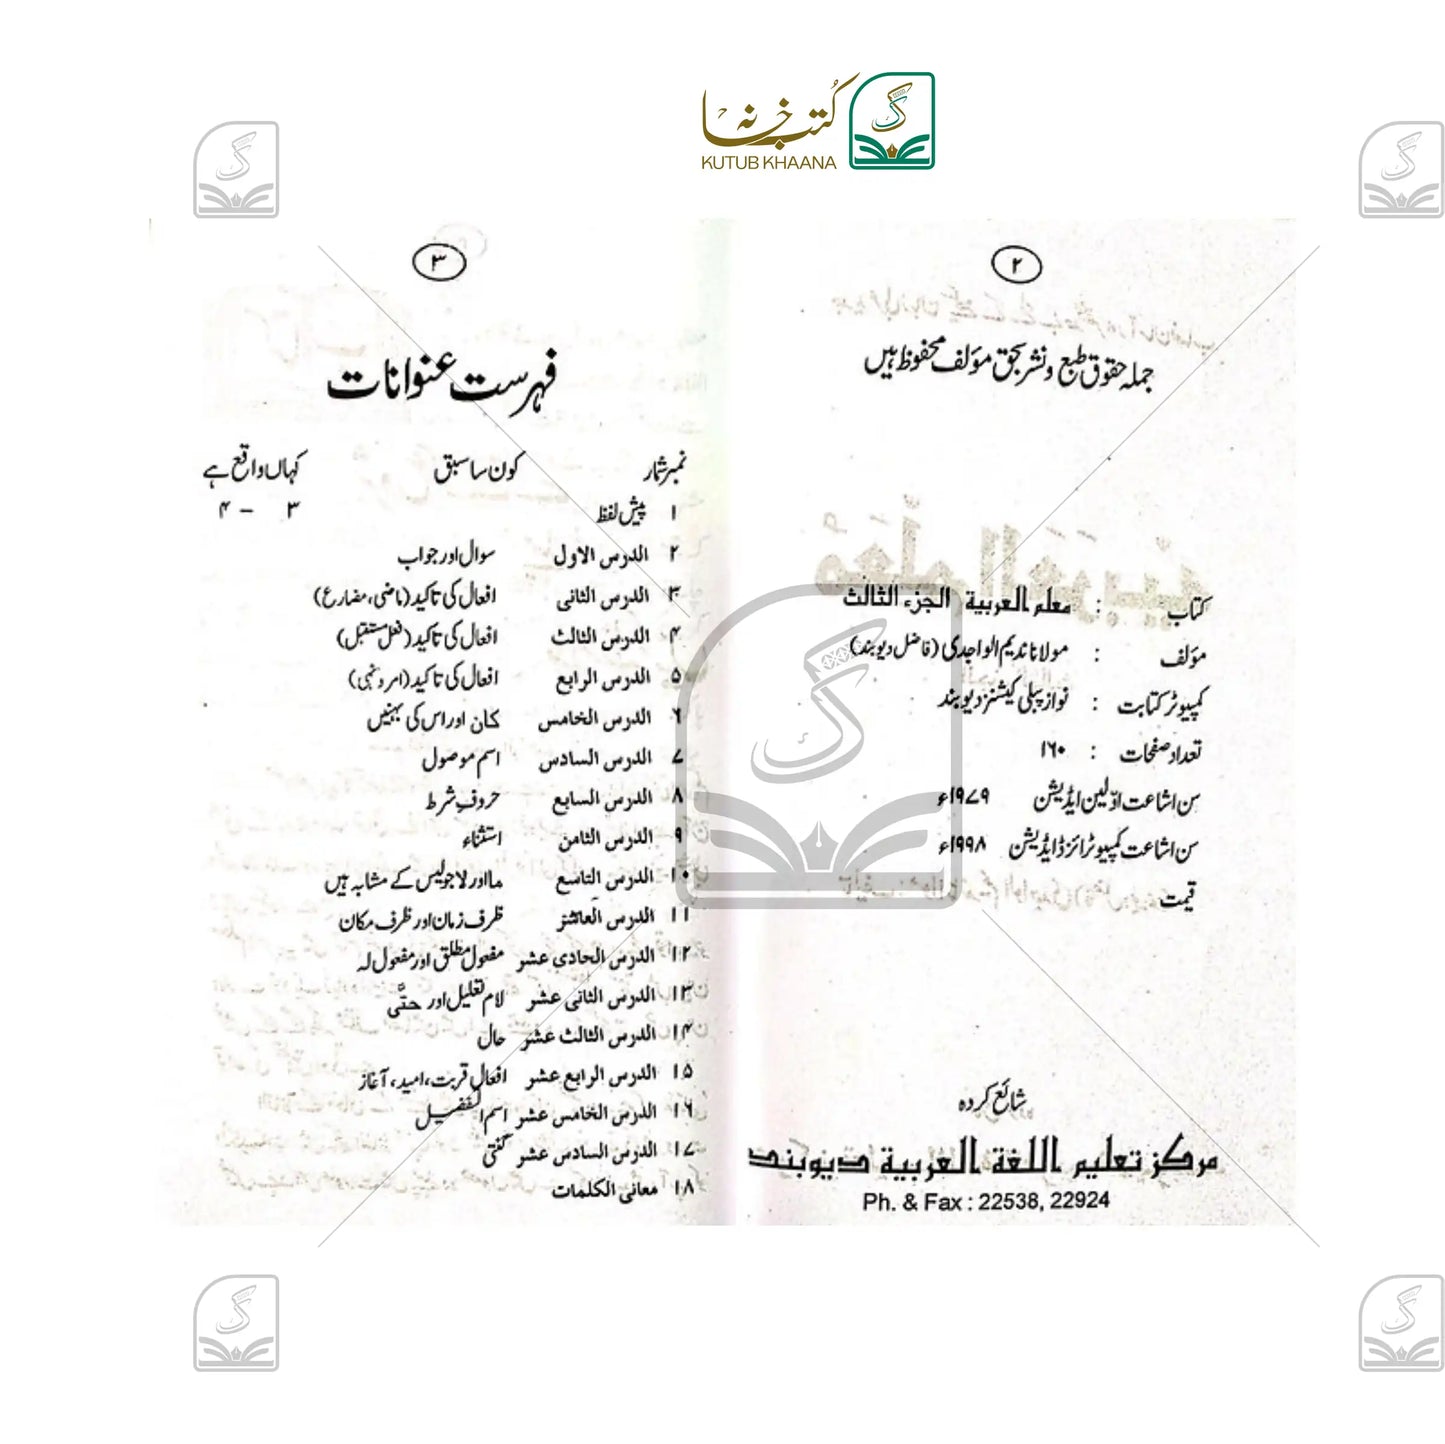 کُتب خانہ
KUTUB KHAANA
۲
جملہ حقوق طبع ونشر بحق مؤلف محفوظ ہیں
کتاب : معلم العربیة الجزء الثالث
مؤلف : مولانا ندیم الواجدی (فاضل دیوبند)
کمپیوٹر کتابت : نواز پبلی کیشنز دیوبند
تعداد صفحات : ۱۶۰
سن اشاعت اوّلین ایڈیشن ۱۹۷۹ء
سن اشاعت کمپیوٹرائزڈ ایڈیشن ۱۹۹۸ء
قیمت
شائع کردہ
مرکز تعلیم اللغة العربیة دیوبند
Ph. & Fax : 22538, 22924
۳
فہرست عنوانات
نمبر شمار کون سا سبق کہاں واقع ہے
۱ پیش لفظ ۳ – ۴
۲ الدرس الاول سوال اور جواب
۳ الدرس الثانی افعال کی تاکید (ماضی، مضارع)
۴ الدرس الثالث افعال کی تاکید (فعل مستقبل)
۵ الدرس الرابع افعال کی تاکید (امر و نہی)
۶ الدرس الخامس کان اور اس کی بہنیں
۷ الدرس السادس اسم موصول
۸ الدرس السابع حروفِ شرط
۹ الدرس الثامن استثناء
۱۰ الدرس التاسع ما اور لا جو لیس کے مشابہ ہیں
۱۱ الدرس العاشر ظرف زمان اور ظرف مکان
۱۲ الدرس الحادی عشر مفعول مطلق اور مفعول لہ
۱۳ الدرس الثانی عشر لام تعلیل اور حتّٰی
۱۴ الدرس الثالث عشر حال
۱۵ الدرس الرابع عشر افعال قربت، امید، آغاز
۱۶ الدرس الخامس عشر اسم التفضیل
۱۷ الدرس السادس عشر گنتی
۱۸ معانی الکلمات